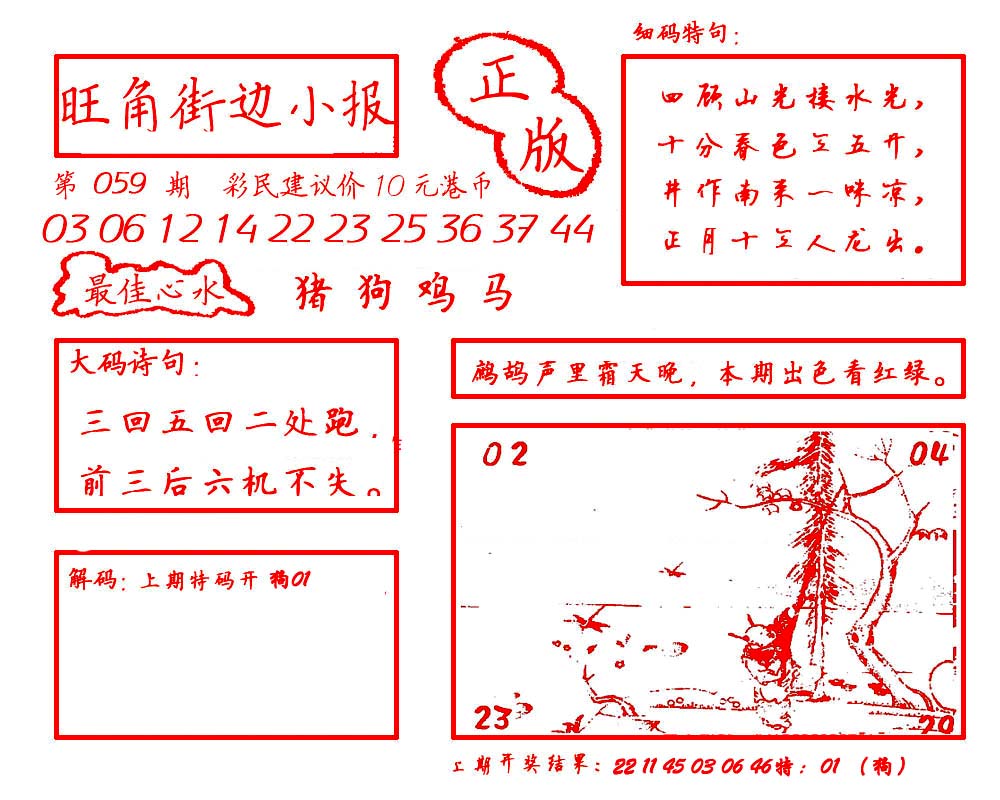 旺角街边小报
正版
第 059 期 彩民建议价 10 元港币
03 06 12 14 22 23 25 36 37 44
最佳心水 猪 狗 鸡 马
细码特句：
四顾山光接水光，
十分春色三五开，
井作南来一味凉，
正月十三人龙出。
大码诗句：
三回五回二处跑．
前三后六机不失。
鹧鸪声里霜天晚，本期出色看红绿。
02
04
23
20
解码：上期特码开 狗01
上期开奖结果：22 11 45 03 06 46特：01 （狗）